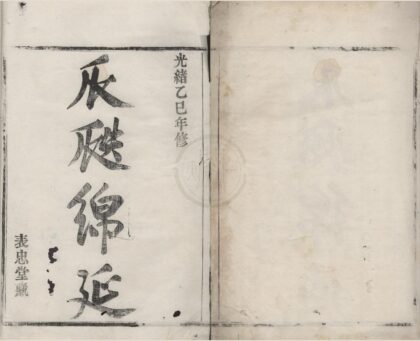 光緒乙巳年修
瓜瓞綿延
表忠堂藏